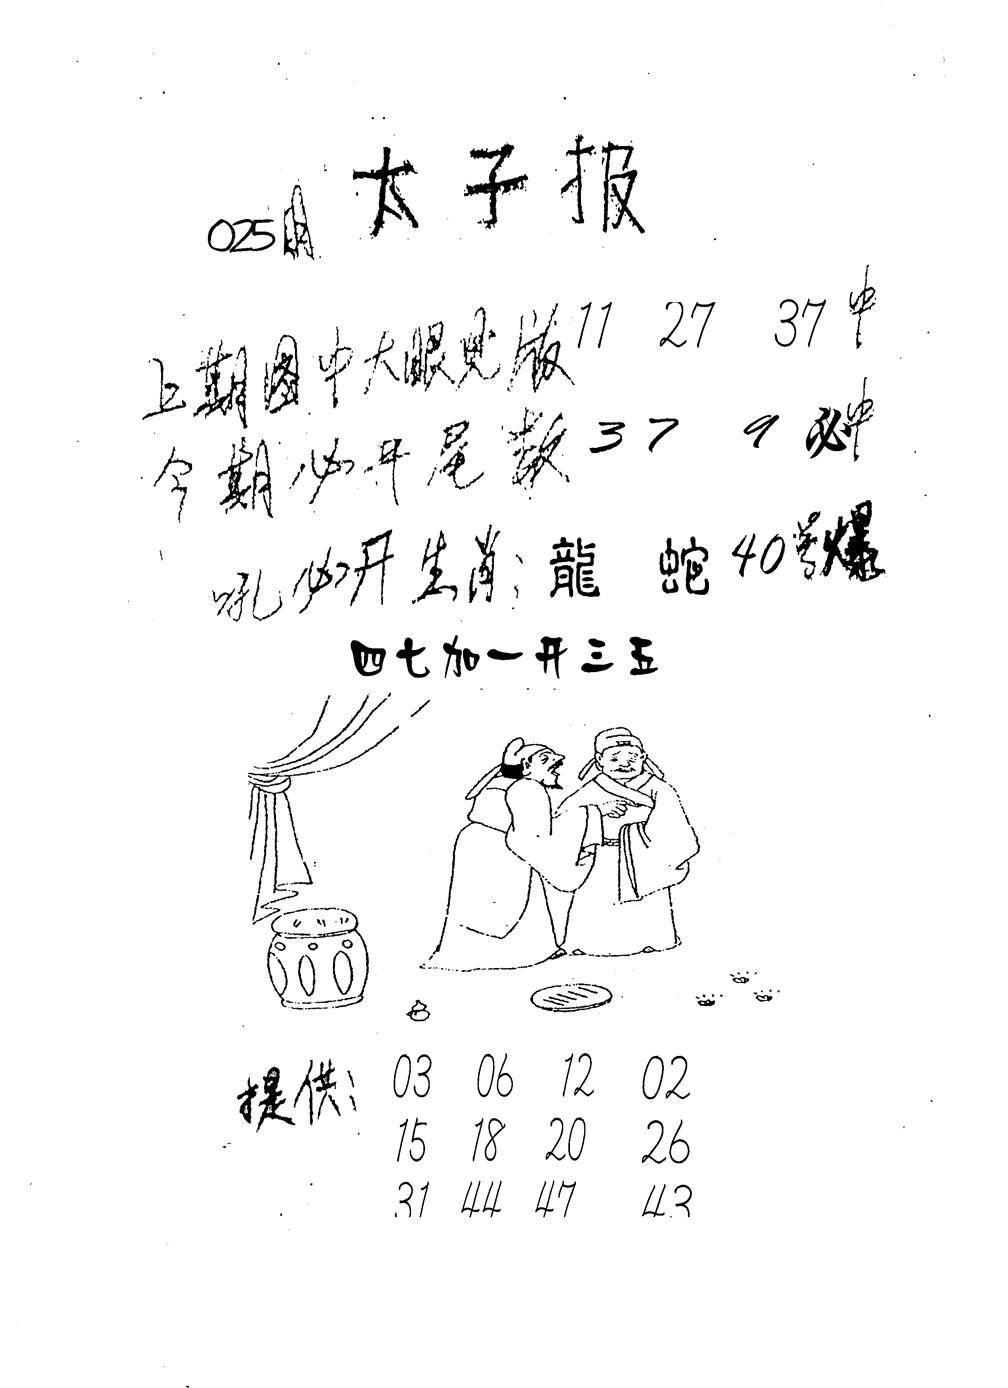 太子报
025期
上期图中大眼见版 11 27 37 中
今期必开尾数 37 9 必中
吼必开生肖：龍 蛇 40号爆
四七加一开三五
提供：03 06 12 02
15 18 20 26
31 44 47 43